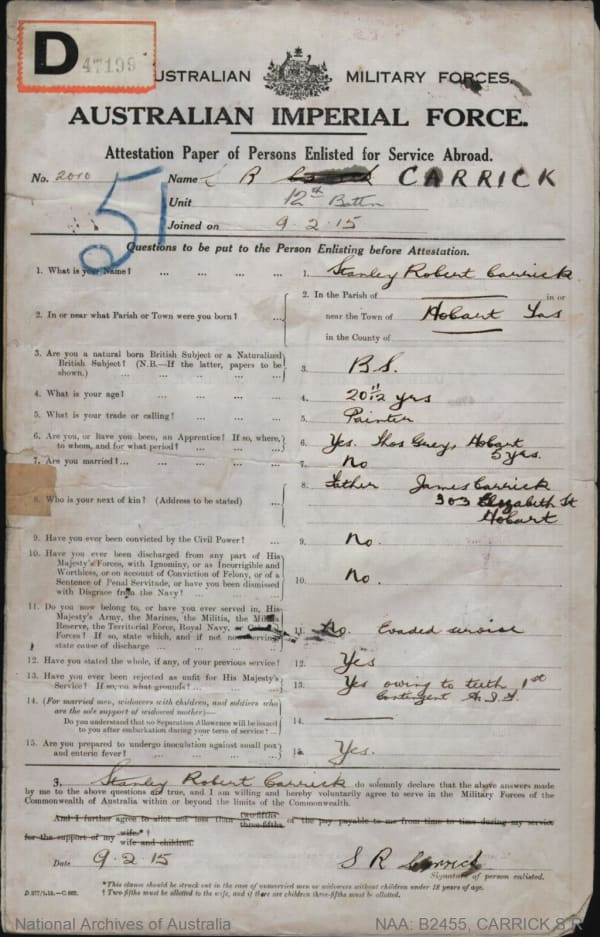 D 47199
AUSTRALIAN MILITARY FORCES.
AUSTRALIAN IMPERIAL FORCE.
Attestation Paper of Persons Enlisted for Service Abroad.
No. 2010 Name S R CARRICK
51
Unit 12th Battn
Joined on 9.2.15
Questions to be put to the Person Enlisting before Attestation.
1. What is your Name? ... ... ... ... 1. Stanley Robert Carrick
2. In or near what Parish or Town were you born? ... 2. In the Parish of in or
near the Town of Hobart Tas
in the County of
3. Are you a natural born British Subject or a Naturalized
British Subject? (N.B.—If the latter, papers to be
shown.) ... ... ... ... 3. B.S.
4. What is your age? ... ... ... ... 4. 20 11/12 yrs
5. What is your trade or calling? ... ... ... 5. Painter
6. Are you, or have you been, an Apprentice? If so, where,
to whom, and for what period? ... ... ... 6. Yes. Thos Greys Hobart
5 yrs.
7. Are you married? ... ... ... ... 7. No
8. Who is your next of kin? (Address to be stated) ... 8. Father James Carrick
303 Elizabeth St
Hobart
9. Have you ever been convicted by the Civil Power? ... 9. No.
10. Have you ever been discharged from any part of His
Majesty's Forces, with Ignominy, or as Incorrigible and
Worthless, or on account of Conviction of Felony, or of a
Sentence of Penal Servitude, or have you been dismissed
with Disgrace from the Navy? ... ... 10. No.
11. Do you now belong to, or have you ever served in, His
Majesty's Army, the Marines, the Militia, the Militia
Reserve, the Territorial Force, Royal Navy, or Colonial
Forces? If so, state which, and if not now serving,
state cause of discharge ... ... ... 11. No.
12. Have you stated the whole, if any, of your previous service? 12. Yes
13. Have you ever been rejected as unfit for His Majesty's
Service? If so, on what grounds? ... ... 13. Yes owing to teeth 1st
Contingent A.I.F
14. (For married men, widowers with children, and soldiers who
are the sole support of widowed mother)—
Do you understand that no Separation Allowance will be issued
to you after embarkation during your term of service? ... 14.
15. Are you prepared to undergo inoculation against small pox
and enteric fever? ... ... ... 15. Yes.
I, Stanley Robert Carrick do solemnly declare that the above answers made
by me to the above questions are true, and I am willing and hereby voluntarily agree to serve in the Military Forces of the
Commonwealth of Australia within or beyond the limits of the Commonwealth.
And I further agree to allot not less than two-fifths three-fifths of the pay payable to me from time to time during my service
for the support of my wife.*† wife and children.
Date 9.2.15 S R Carrick
Signature of person enlisted.
*This clause should be struck out in the case of unmarried men or widowers without children under 18 years of age.
† Two-fifths must be allotted to the wife, and if there are children three-fifths must be allotted.
National Archives of Australia NAA: B2455, CARRICK S R